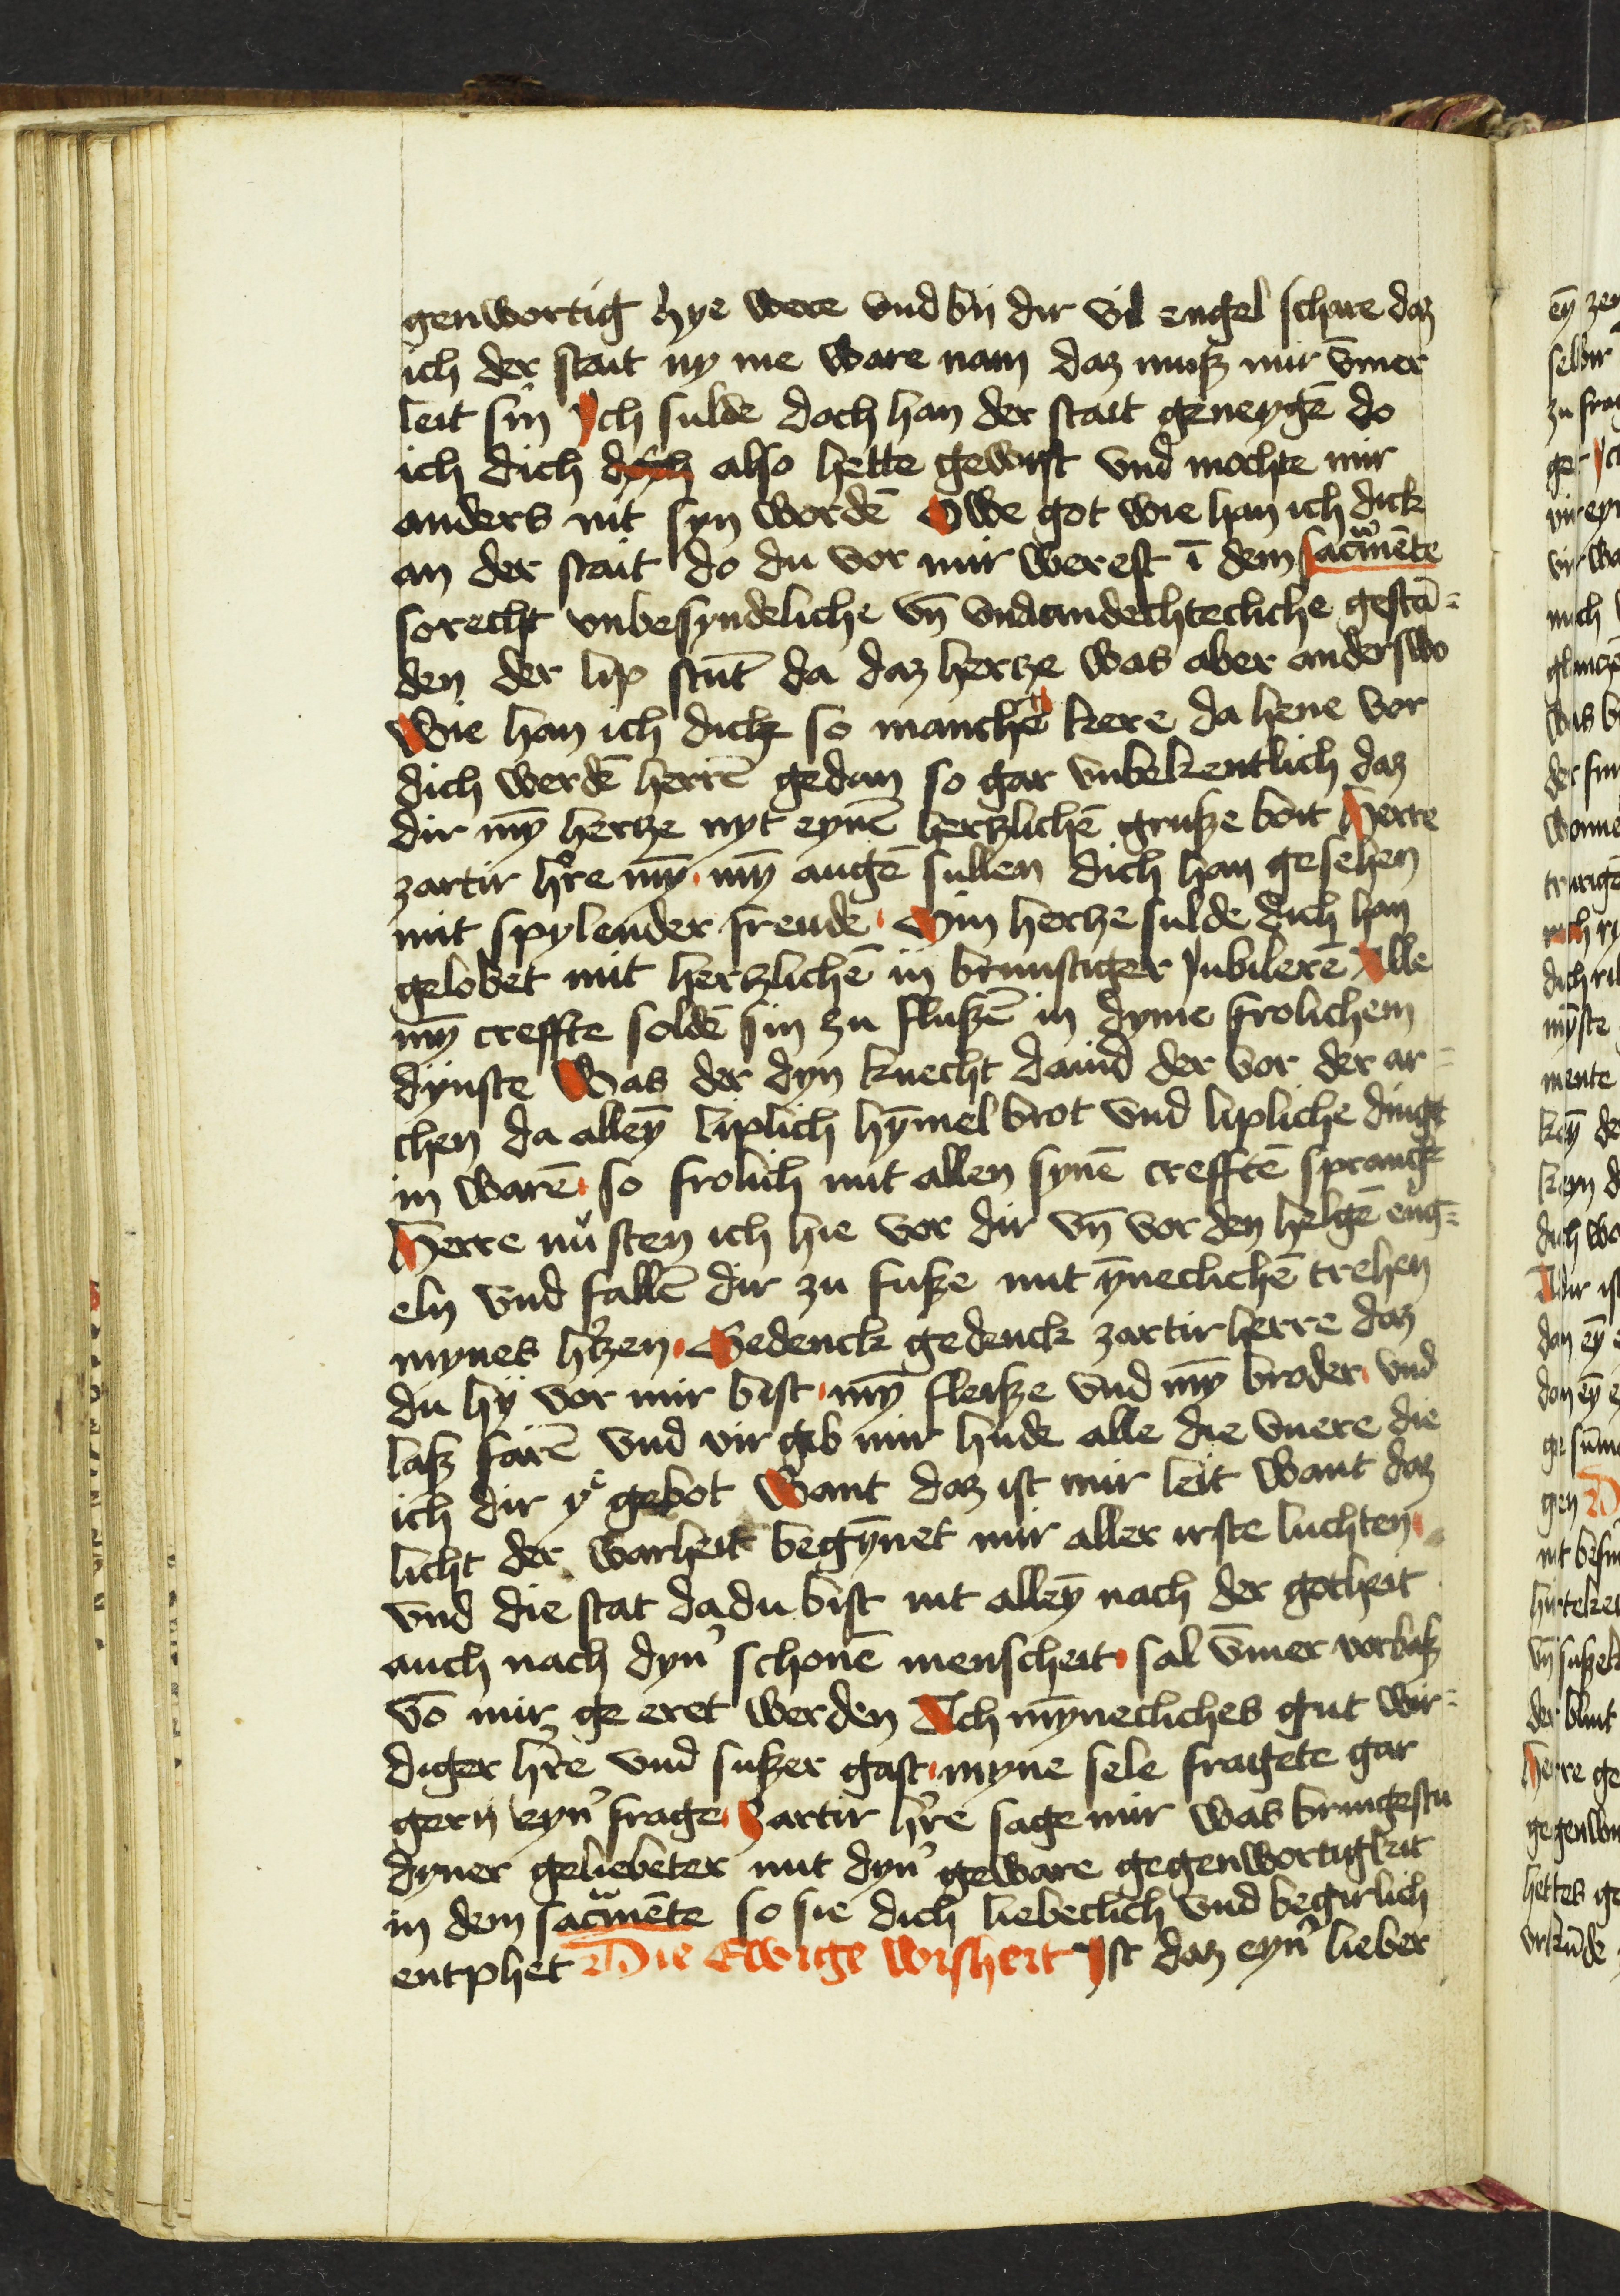 genwortig hye were vnd bij dir vil engel schare daz
ich der stait ny me ware nam daz musz mir v̄mer
leit sin Ich sulde doch han der stait geneygē do
ich dich dych also hette gewist vnd mochte mir
anders nit syn wordē Owe got wie han ich dick
an der stait do du vor mir werest ī dem sacr̄mēte
sorecht vnbesyndeliche vn̄ vndandechtecliche gestā=
den der lip stūt da daz hertze was aber anderswo
Wie han ich dick so manchē kere da hene vor
dich werdē herrē gedan so gar vnbekentlich daz
dir mȳ hertze nyt eynē hertzlichē grusze boit Herre
zartir h're mȳ mȳ augē sullen dich han gesehen
mit spylender freude Min hertze sulde dich han
gelobet mit hertzlichē in brunstiger Jubilerē Alle
mȳ creffte soldē sin zu fluszē in dyme frolichem
dynste Was der dyn knecht dauid der vor der ar=
chen da alleȳ liplich hȳmel brot vnd lipliche dinge
in warē so frolich mit allen synē crefftē spranck
Herre nu sten ich hie vor dir vn̄ vor den helgē eng=
eln vnd fallē dir zu fusze mit ȳneclichē trehen
mynes h'tzen Gedenck gedenck zartir herre daz
du hy vor mir bist mȳ fleisze vnd mȳ broder vnd
lasz farē vnd vir geb mir hude alle die vnere die
ich dir yͤ gebot Want daz ist mir leit want daz
licht der warheit begȳnet mir aller irste luchten
vnd die stat da du bist nit alleȳ nach der gotheit
auch nach dyn' schonē menscheit sal v̄mer vorbasz
vō mir ge eret werden Ach mȳnecliches gut wir=
diger h're vnd suszer gast myne sele fragete gar
gern eyn' frage Zartir h're sage mir was bringestu
dyner geliebeter mit dyn' geware gegenwortigkeit
in dem sacr̄mēte so sie dich liebeclich vnd begirlich
entphet Die Ewige wisheit Ist daz eyn' lieber